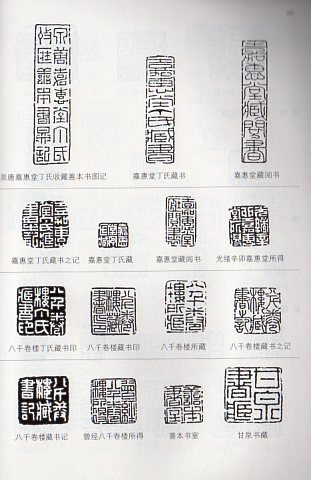 泉唐嘉惠堂丁氏收藏善本书图记
嘉惠堂丁氏藏书
嘉惠堂藏阅书
嘉惠堂丁氏藏书之记
嘉惠堂丁氏藏
嘉惠堂藏阅书
光绪辛卯嘉惠堂所得
八千卷楼丁氏藏书印
八千卷楼藏书印
八千卷楼所藏
八千卷楼藏书之记
八千卷楼藏书记
曾经八千卷楼所得
善本书室
甘泉书藏